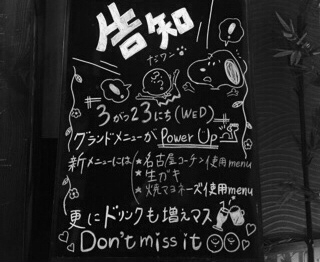 告知
だワン
3がつ23にち(WED)
グランドメニューが Power Up
新メニューには ★名古屋コーチン使用menu
★生ガキ
★焼マヨネーズ使用menu
更にドリンクも増えマス
Don't miss it